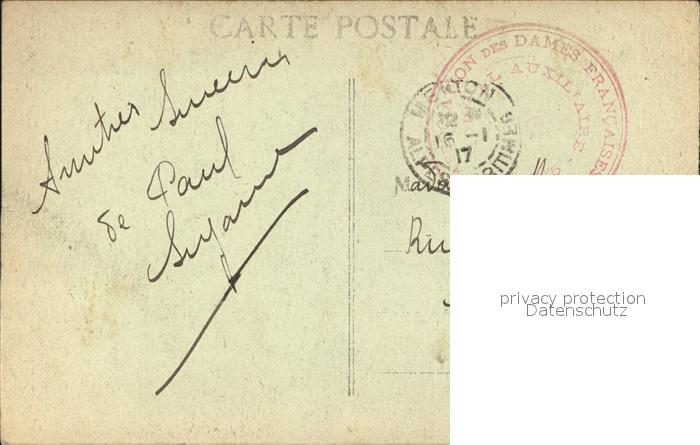 CARTE POSTALE
Amitiés Sincères
de Paul
Suzanne
UNION DES DAMES FRANÇAISES
AUXILIAIRE
MENTON
16 -1
17
ALPES MARITIMES
Mada
Ru
privacy protection
Datenschutz